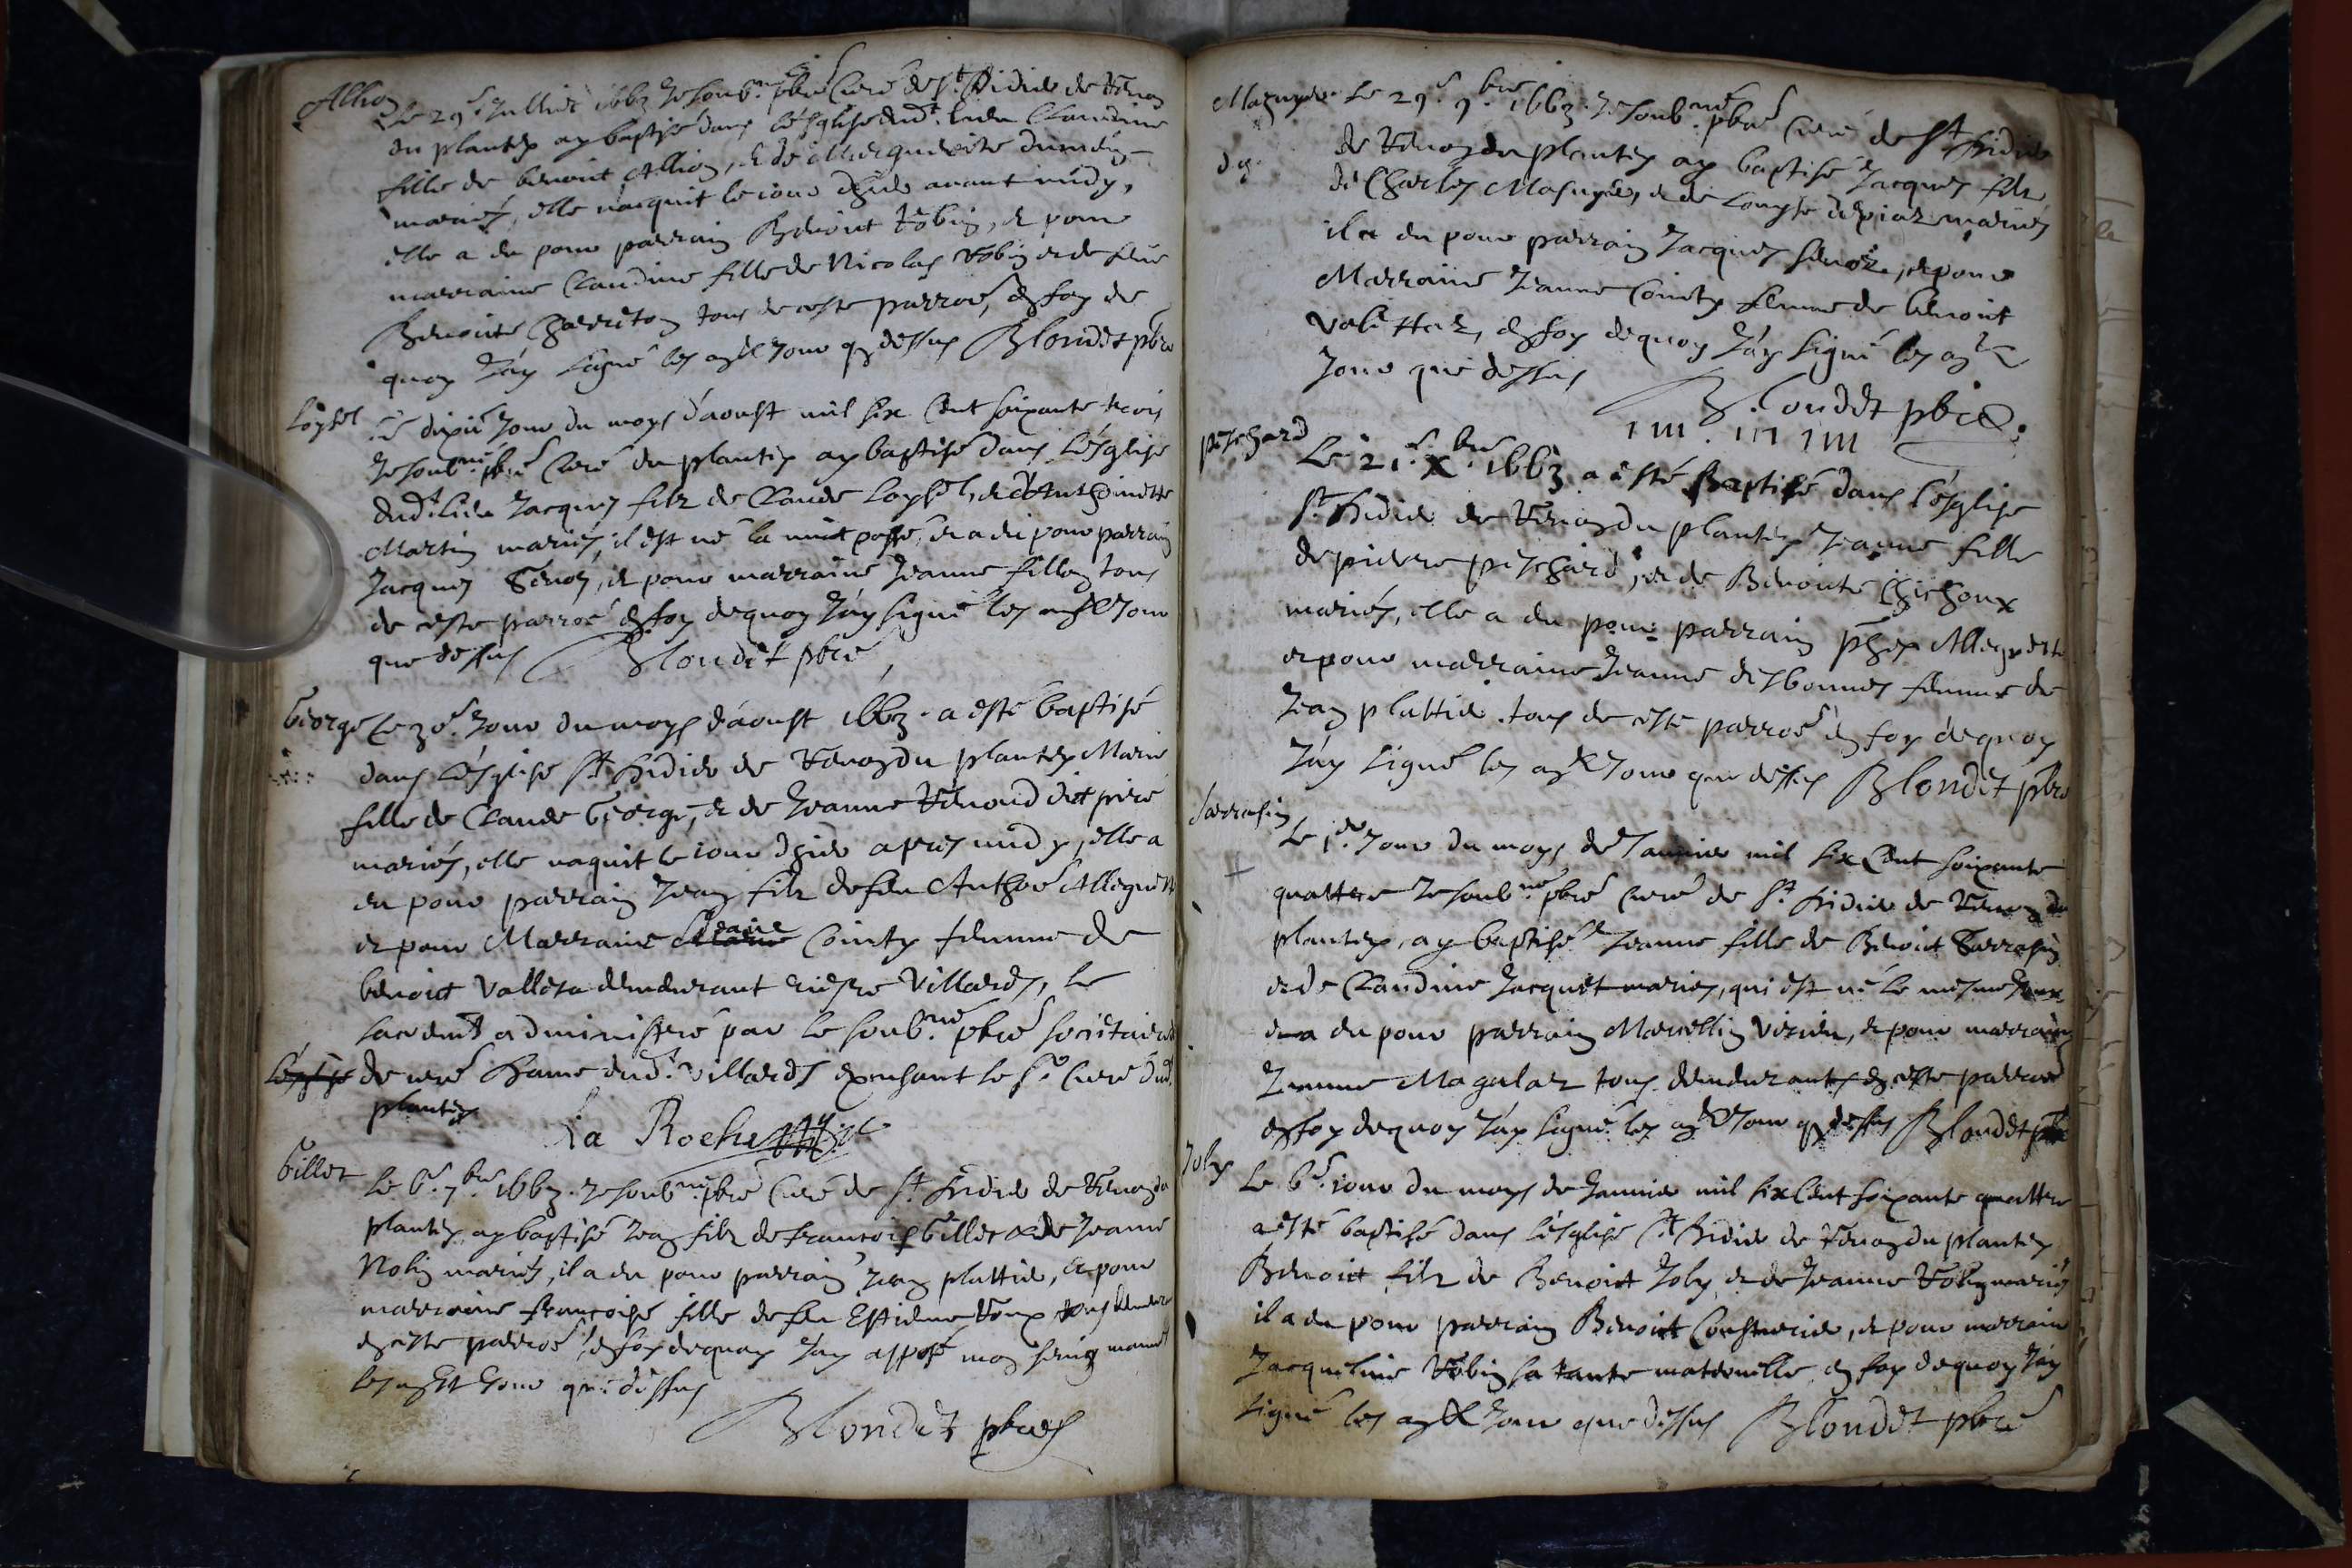 Allion
Le 29e Julliet 1663 Je soubné pbre Curé de St Didier de Renon
du plantey ay baptisé dans l'ésglise dudt lieu Claudine
fille de benoist Allion, & de Marguerite
mariés, elle nacquit le iour dhier avant midy,
elle a eu pour parrain Benoist Robin, & pour
marraine Claudine fille de Nicolas Robin et de feue
Benoiste Charreton tous de ceste parroé, en foy de
quoy J'ay signé les an & Jour q dessus Blondet pbre
Loysel
Le dixie Jour du moys d'aoust mil six Cent soixante trois
Je soubné pbre Curé du plantey ay baptisé dans l'ésglise
dudt lieu Jacques filz de Claude Loysel, & d'Anthoinette
Martin mariés, il est né la nuit passé, & a eu pour parrain
Jacques Senoz, & pour marraine Jeanne fillon tous
de ceste parroé en foy dequoy J'ay signé les an & Jour
que dessus Blondet pbre
George
Le 30e Jour du moys d'aoust 1663 a esté baptisé
dans l'ésglise St Didier de Renon du plantey Marie
fille de Claude George, & de Jeanne Renoud dict
mariés, elle naquit le iour dhier apres midy, elle a
eu pour parrain Jean filz de feu Anthoé Allegrett
& pour Marraine Jeane Cointy femme de
benoict Valleta demeurant riesre Villards, le
sacremt administré par le soubné pbre societaire
l'ésglise de nre Dame dudt Villards exensant le sr Curé dudt
plantey
La Roche
billet
Le 6e 7bre 1663 Je soubné pbre Curé de St Didier de Renon du
plantey ay baptisé Jean filz de francois billet & de Jeanne
Robin mariés, il a eu pour parrain Jean plattier, & pour
marraine francoise fille de feu Estienne Roux tous demeur
en ceste parroé, en foy dequoy J'ay apposé mon seing manuel
les an & Jour que dessus
Blondet pbre
Masuyer
Le 29e 9bre 1663 Je soubné pbre Curé de St Didier
de Renon du plantey ay baptisé Jacques filz
de Charles Masuyer, & de Louyse depiaz mariés
il a eu pour parrain Jacques Senoz, & pour
Marraine Jeanne Cointy femme de benoist
Valettaz, en foy dequoy J'ay signé les an &
Jour que dessus
Blondet pbre
pischard
Le 21e Xbre 1663 a esté Baptisé dans l'ésglise
St Didier de Renon du plantey Jeanne fille
de pierre pischard, & de Benoiste Chichoux
mariés, elle a eu pour parrain Allegrett
& pour marraine Jeanne desbonnes femme de
Jean plattier tous de ceste parroé en foy dequoy
J'ay signé les an & Jour que dessus Blondet pbre
Sarrasin
Le 1er Jour du moys de Janvier mil six Cent soixante
quattre Je soubné pbre Curé de St Didier de Renon du
plantey, ay baptisé Jeanne fille de Benoist Sarrasin
& de Claudine Jacquet mariés, qui est né le mesme jour
& a eu pour parrain Marcellin Virieu, & pour marraine
Jeanne Magalaz tous demeurants en ceste parroé
en foy dequoy J'ay signé les an & Jour q dessus Blondet pbre
Joly
Le 6e iour du moys de Janvier mil six Cent soixante quattre
a esté baptisé dans l'ésglise St Didier de Renon du plantey
Benoict filz de Benoict Joly, & de Jeanne Robin mariés
il a eu pour parrain Benoict Cousturier, & pour marraine
Jacqueline Robin sa tante maternelle en foy dequoy J'ay
signé les an & Jour que dessus Blondet pbre